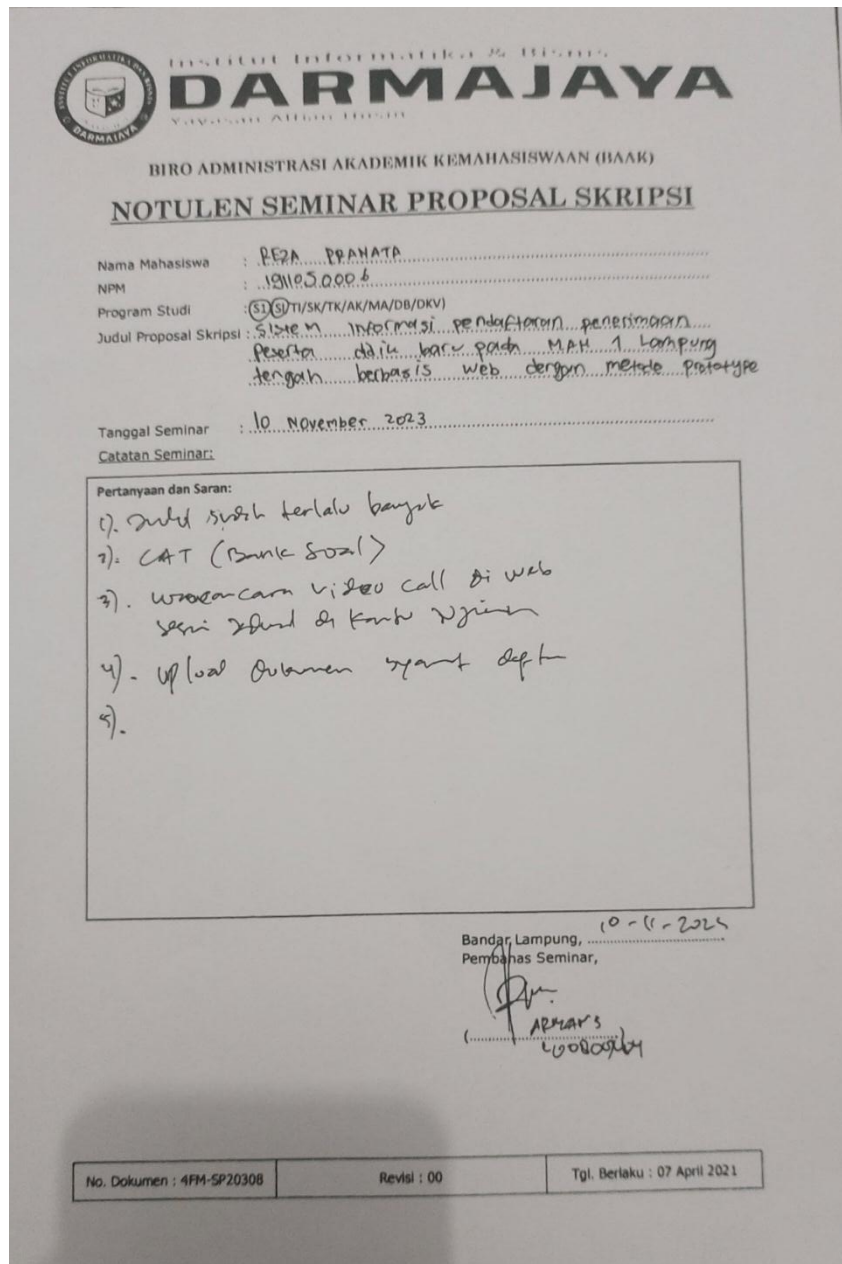 Institut Informatika & Bisnis
DARMAJAYA
Yayasan Alfian Husin
INSTITUT INFORMATIKA DAN BISNIS
DARMAJAYA
BIRO ADMINISTRASI AKADEMIK KEMAHASISWAAN (BAAK)
NOTULEN SEMINAR PROPOSAL SKRIPSI
Nama Mahasiswa : REZA PRANATA
NPM : 1911050006
Program Studi : (S1 SI/TI/SK/TK/AK/MA/DB/DKV)
Judul Proposal Skripsi : Sistem Informasi pendaftaran penerimaan
Peserta didik baru pada MAH 1 Lampung
tengah berbasis web dengan metode prototype
Tanggal Seminar : 10 November 2023
Catatan Seminar:
Pertanyaan dan Saran:
1). Judul sudah terlalu banyak
2). CAT (Bank Soal)
3). wawancara video call di web
di Kartu
4). Upload Dokumen syarat
5).
Bandar Lampung, 10-11-2023
Pembahas Seminar,
No. Dokumen : 4FM-SP20308
Revisi : 00
Tgl. Berlaku : 07 April 2021